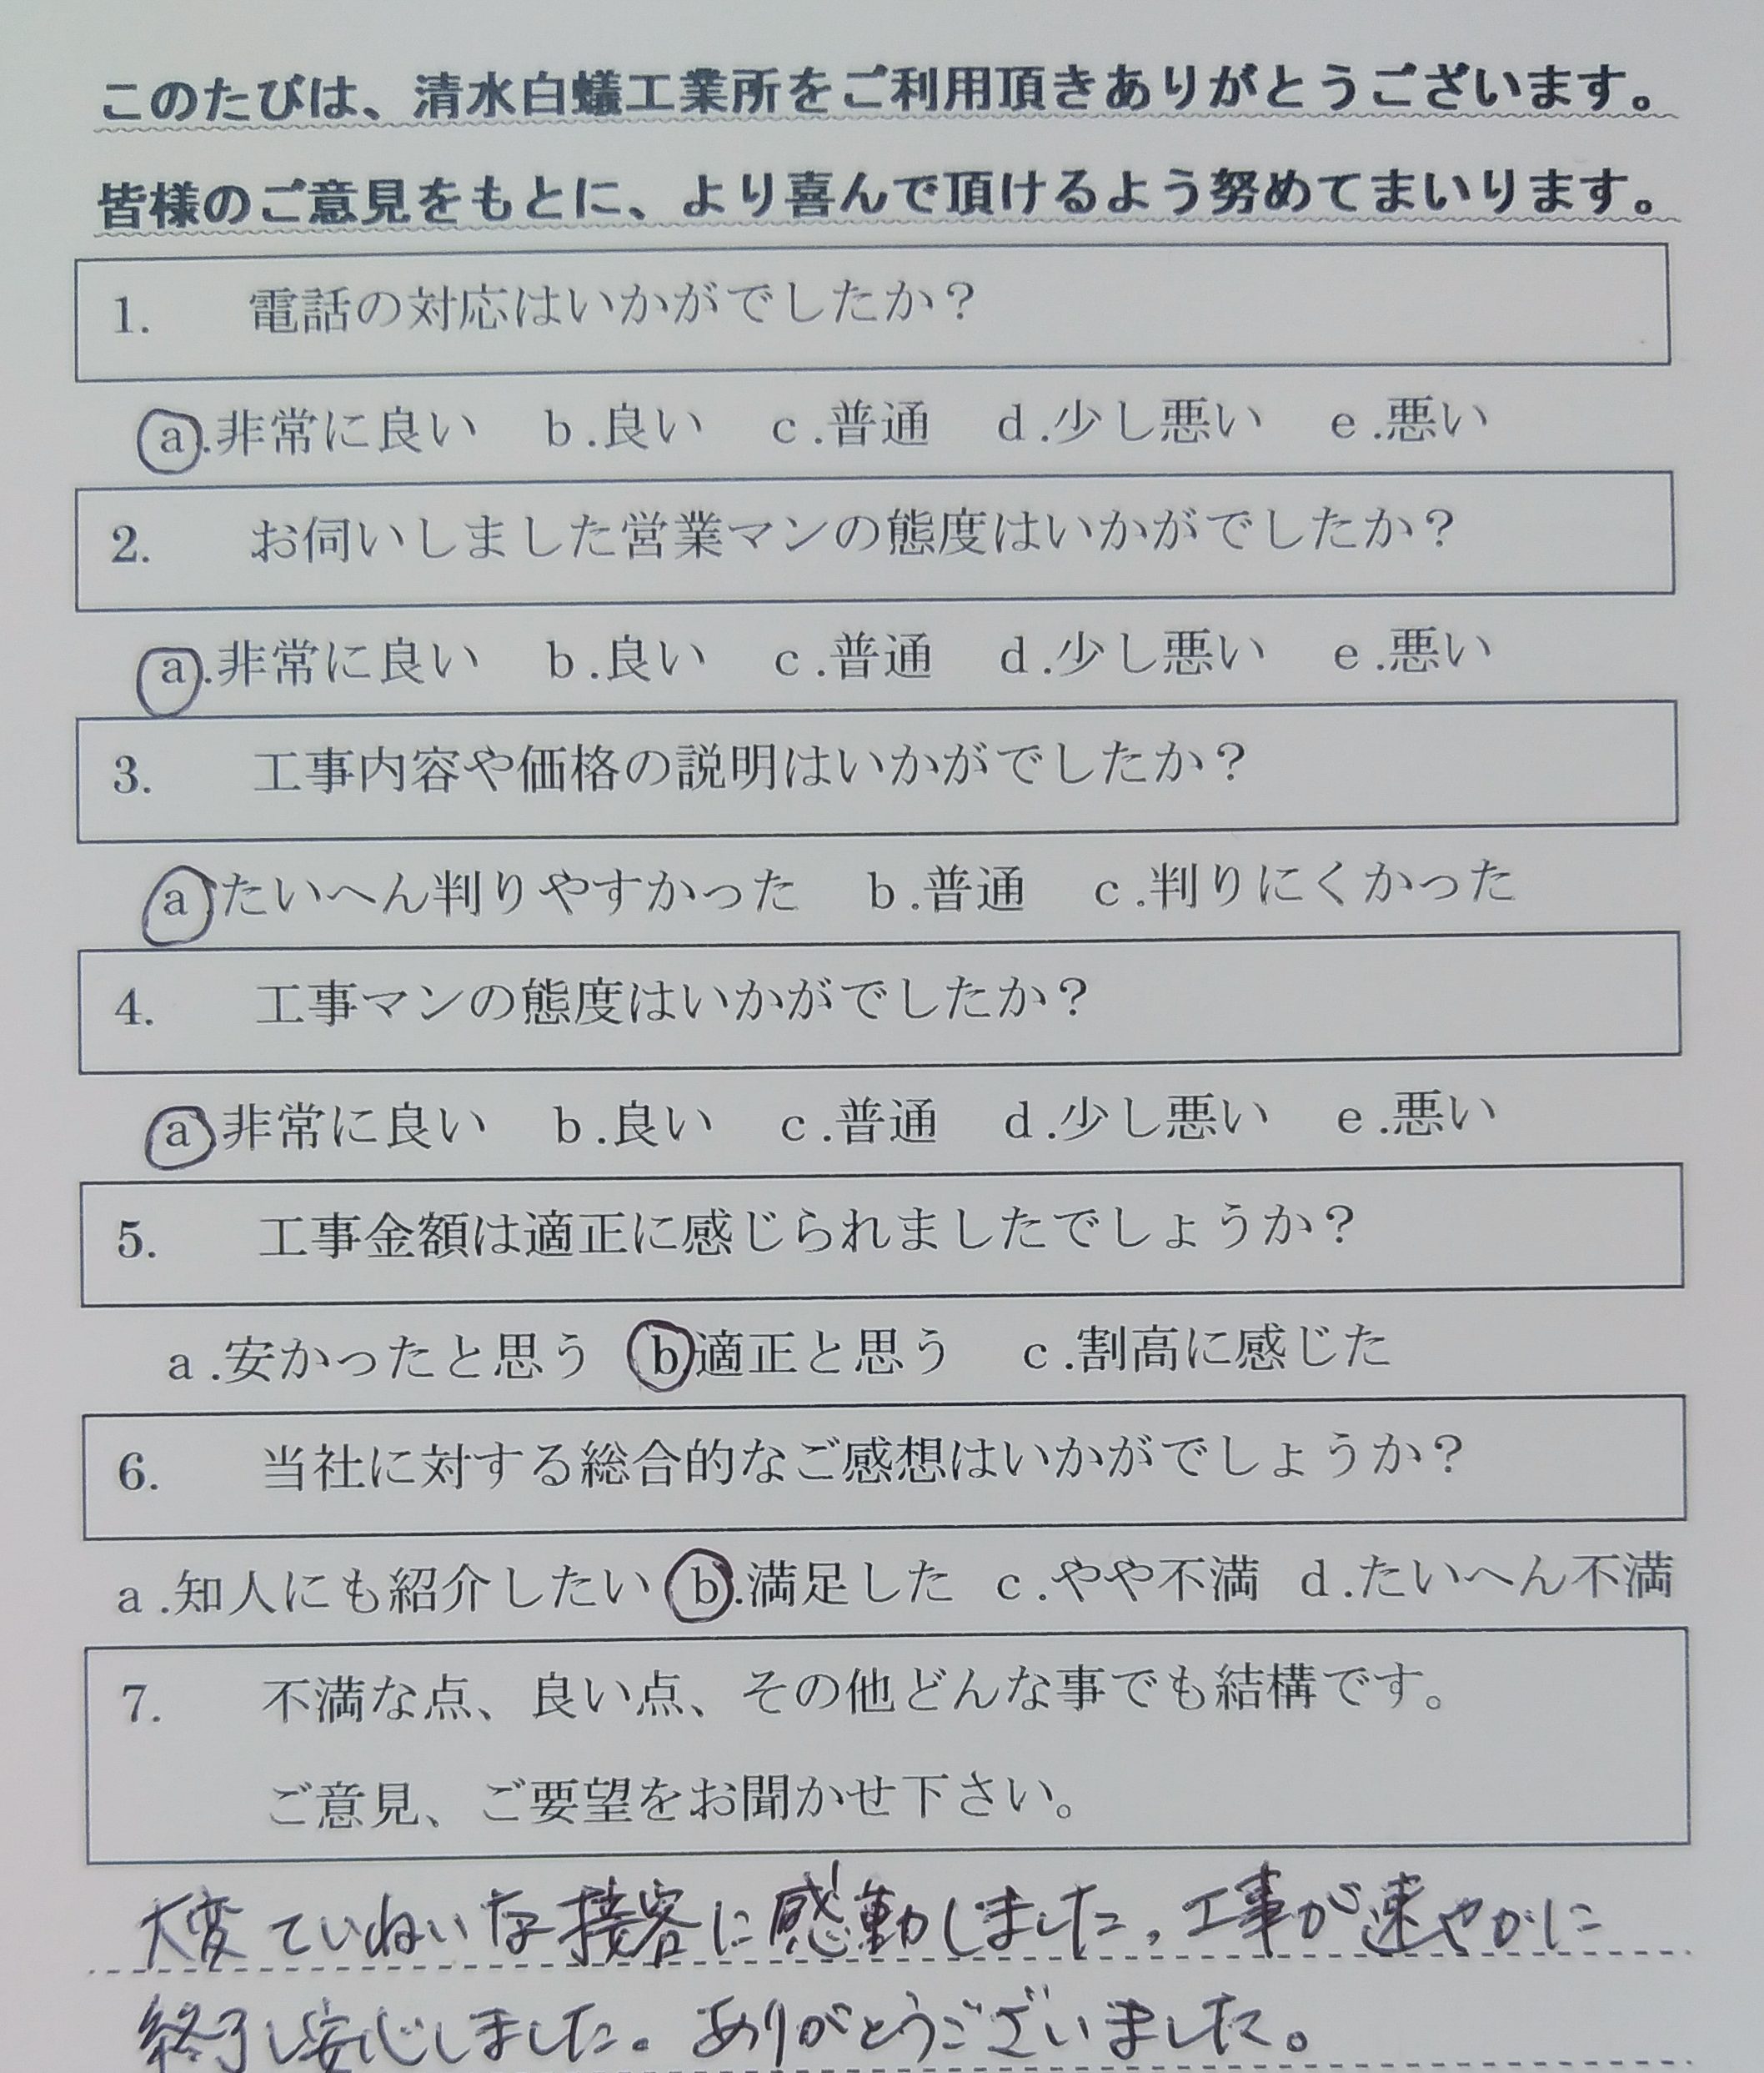 このたびは、清水白蟻工業所をご利用頂きありがとうございます。
皆様のご意見をもとに、より喜んで頂けるよう努めてまいります。
1. 電話の対応はいかがでしたか？
a.非常に良い b.良い c.普通 d.少し悪い e.悪い
2. お伺いしました営業マンの態度はいかがでしたか？
a.非常に良い b.良い c.普通 d.少し悪い e.悪い
3. 工事内容や価格の説明はいかがでしたか？
a たいへん判りやすかった b.普通 c.判りにくかった
4. 工事マンの態度はいかがでしたか？
a 非常に良い b.良い c.普通 d.少し悪い e.悪い
5. 工事金額は適正に感じられましたでしょうか？
a.安かったと思う b 適正と思う c.割高に感じた
6. 当社に対する総合的なご感想はいかがでしょうか？
a.知人にも紹介したい b.満足した c.やや不満 d.たいへん不満
7. 不満な点、良い点、その他どんな事でも結構です。
ご意見、ご要望をお聞かせ下さい。
大変ていねいな接客に感動しました。工事が速やかに
終了し安心しました。ありがとうございました。